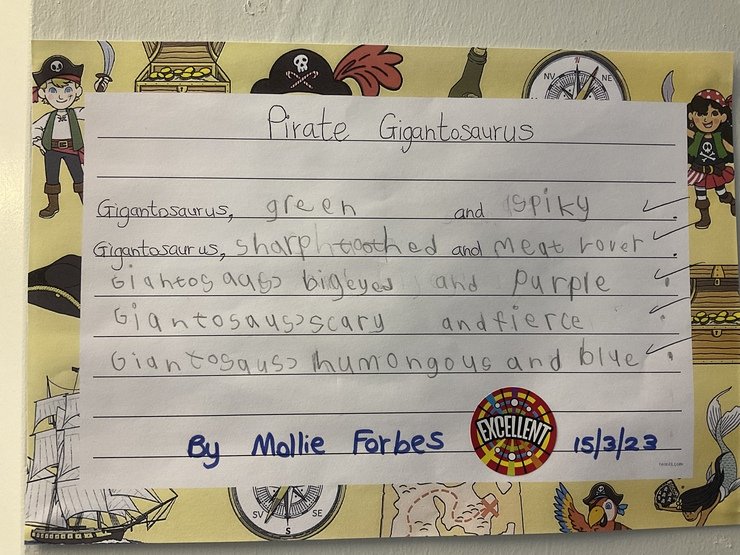 NV N NE
Pirate Gigantosaurus
Gigantosaurus, green and spiky .
Gigantosaurus, sharp toothed and meat rover .
Giantosauss bigeyed and purple .
Giantosauss scary and fierce .
Giantosauss humongous and blue .
EXCELLENT
By Mollie Forbes 15/3/23
SV S SE